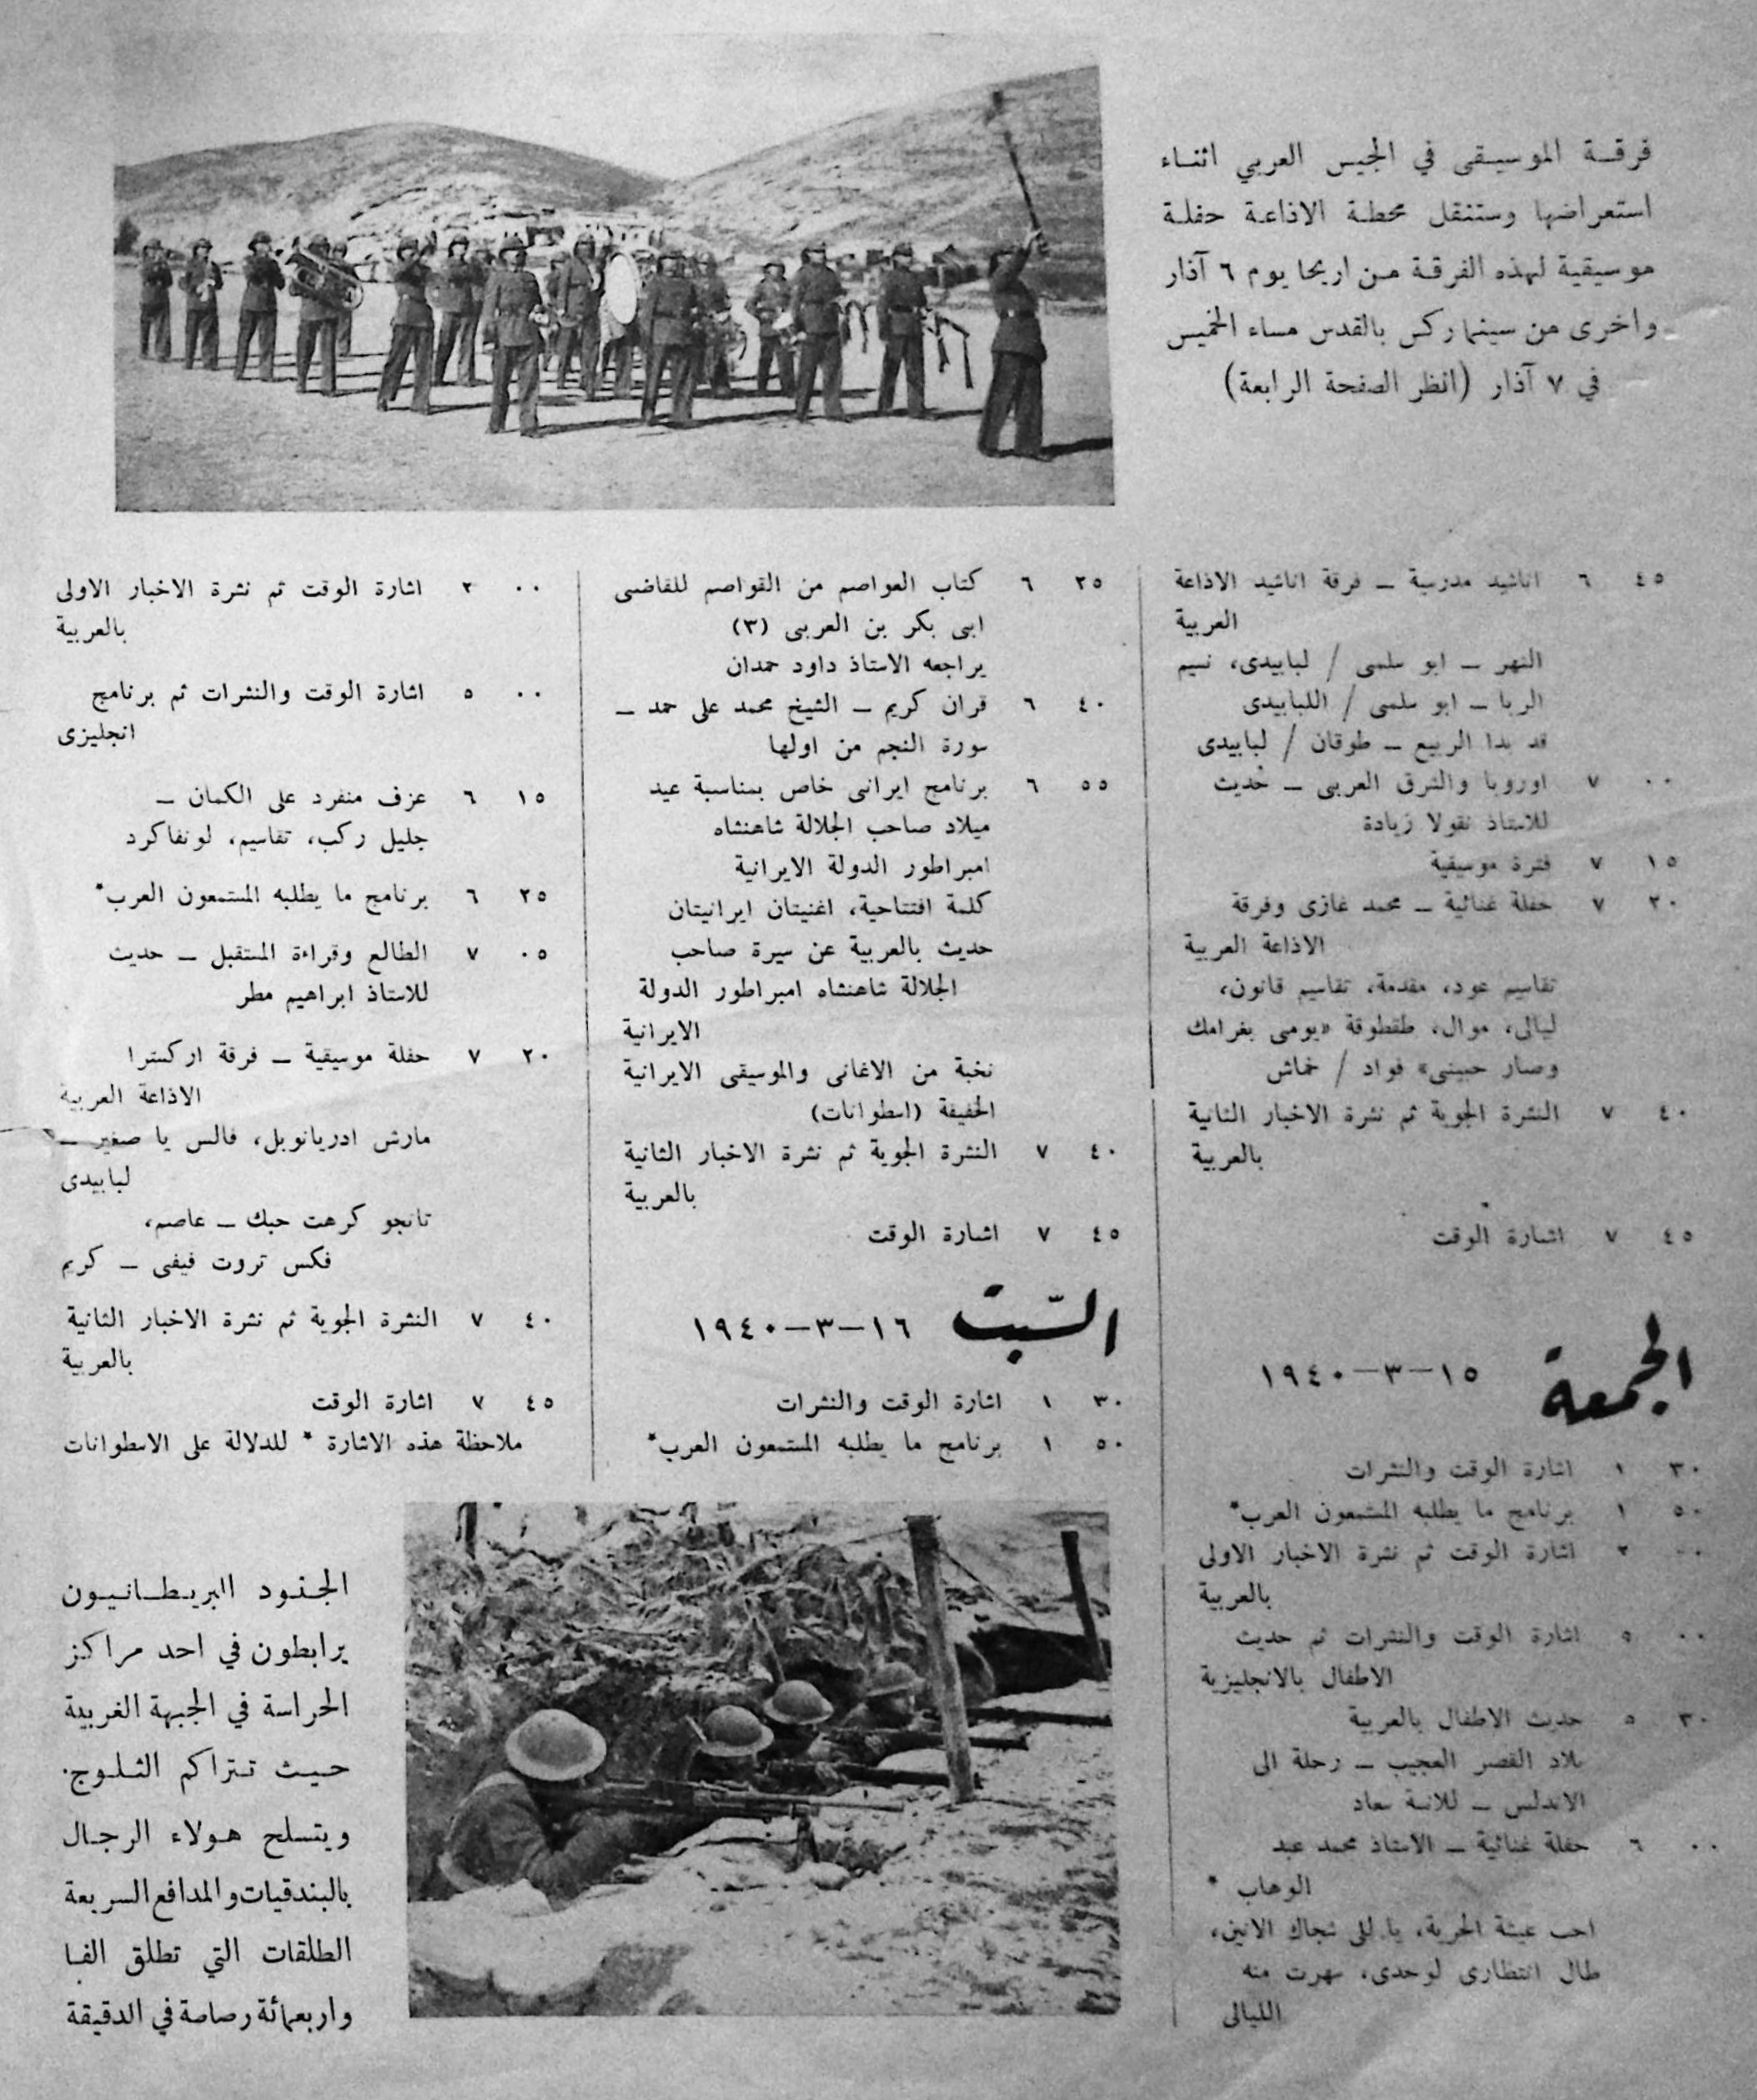 فرقة الموسيقى في الجيش العربي اثناء
استعراضها وستنقل محطة الاذاعة حفلة
موسيقية لهذه الفرقة من اريحا يوم ٦ آذار
واخرى من سينما ركس بالقدس مساء الخميس
في ٧ آذار (انظر الصفحة الرابعة)
٤٥ ٦ اناشيد مدرسية – فرقة اناشيد الاذاعة
العربية
النهر – ابو سلمى / لبابيدى، نسيم
الربا – ابو سلمى / اللبابيدى
قد بدا الربيع – طوقان / لبابيدى
٠٠ ٧ اوروبا والشرق العربى – حديث
للاستاذ نقولا زيادة
١٥ ٧ فترة موسيقية
٢٠ ٧ حفلة غنائية – محمد غازى وفرقة
الاذاعة العربية
تقاسيم عود، مقدمة، تقاسيم قانون،
ليالى، موال، طقطوقة «يومى بغرامك
وصار حبيبنى» فواد / خماش
٤٠ ٧ النشرة الجوية ثم نشرة الاخبار الثانية
بالعربية
٤٥ ٧ اشارة الوقت
الجمعة ١٥–٣–١٩٤٠
٣٠ ١ اشارة الوقت والنشرات
٥٠ ١ برنامج ما يطلبه المستمعون العرب*
٠٠ ٢ اشارة الوقت ثم نشرة الاخبار الاولى
بالعربية
٠٠ ٥ اشارة الوقت والنشرات ثم حديث
الاطفال بالانجليزية
٣٠ ٥ حديث الاطفال بالعربية
بلاد القصر العجيب – رحلة الى
الاندلس – للانسة سعاد
٠٠ ٦ حفلة غنائية – الاستاذ محمد عبد
الوهاب *
احب عيشة الحرية، يا للى شجاك الانين،
طال انتظارى لوحدى، سهرت منه
الليالى
٢٥ ٦ كتاب العواصم من القواصم للقاضى
ابى بكر بن العربى (٣)
يراجعه الاستاذ داود حمدان
٤٠ ٦ قران كريم – الشيخ محمد على حمد –
سورة النجم من اولها
٥٥ ٦ برنامج ايرانى خاص بمناسبة عيد
ميلاد صاحب الجلالة شاهنشاه
امبراطور الدولة الايرانية
كلمة افتتاحية، اغنيتان ايرانيتان
حديث بالعربية عن سيرة صاحب
الجلالة شاهنشاه امبراطور الدولة
الايرانية
نخبة من الاغانى والموسيقى الايرانية
الخفيفة (اسطوانات)
٤٠ ٧ النشرة الجوية ثم نشرة الاخبار الثانية
بالعربية
٤٥ ٧ اشارة الوقت
السّبت ١٦–٣–١٩٤٠
٣٠ ١ اشارة الوقت والنشرات
٥٠ ١ برنامج ما يطلبه المستمعون العرب*
٠٠ ٢ اشارة الوقت ثم نشرة الاخبار الاولى
بالعربية
٠٠ ٥ اشارة الوقت والنشرات ثم برنامج
انجليزى
١٥ ٦ عزف منفرد على الكمان –
جليل ركب، تقاسيم، لونفاكرد
٢٥ ٦ برنامج ما يطلبه المستمعون العرب*
٠٥ ٧ الطالع وقراءة المستقبل – حديث
للاستاذ ابراهيم مطر
٢٠ ٧ حفلة موسيقية – فرقة اركسترا
الاذاعة العربية
مارش ادريانوبل، فالس يا صغير –
لبابيدى
تانجو كرهت حبك – عاصم،
فكس تروت فيفى – كريم
٤٠ ٧ النشرة الجوية ثم نشرة الاخبار الثانية
بالعربية
٤٥ ٧ اشارة الوقت
ملاحظة هذه الاشارة * للدلالة على الاسطوانات
الجنود البريطانيون
يرابطون في احد مراكز
الحراسة في الجبهة الغربية
حيث تتراكم الثلوج.
ويتسلح هولاء الرجال
بالبندقيات والمدافع السريعة
الطلقات التي تطلق الفا
واربعمائة رصاصة في الدقيقة